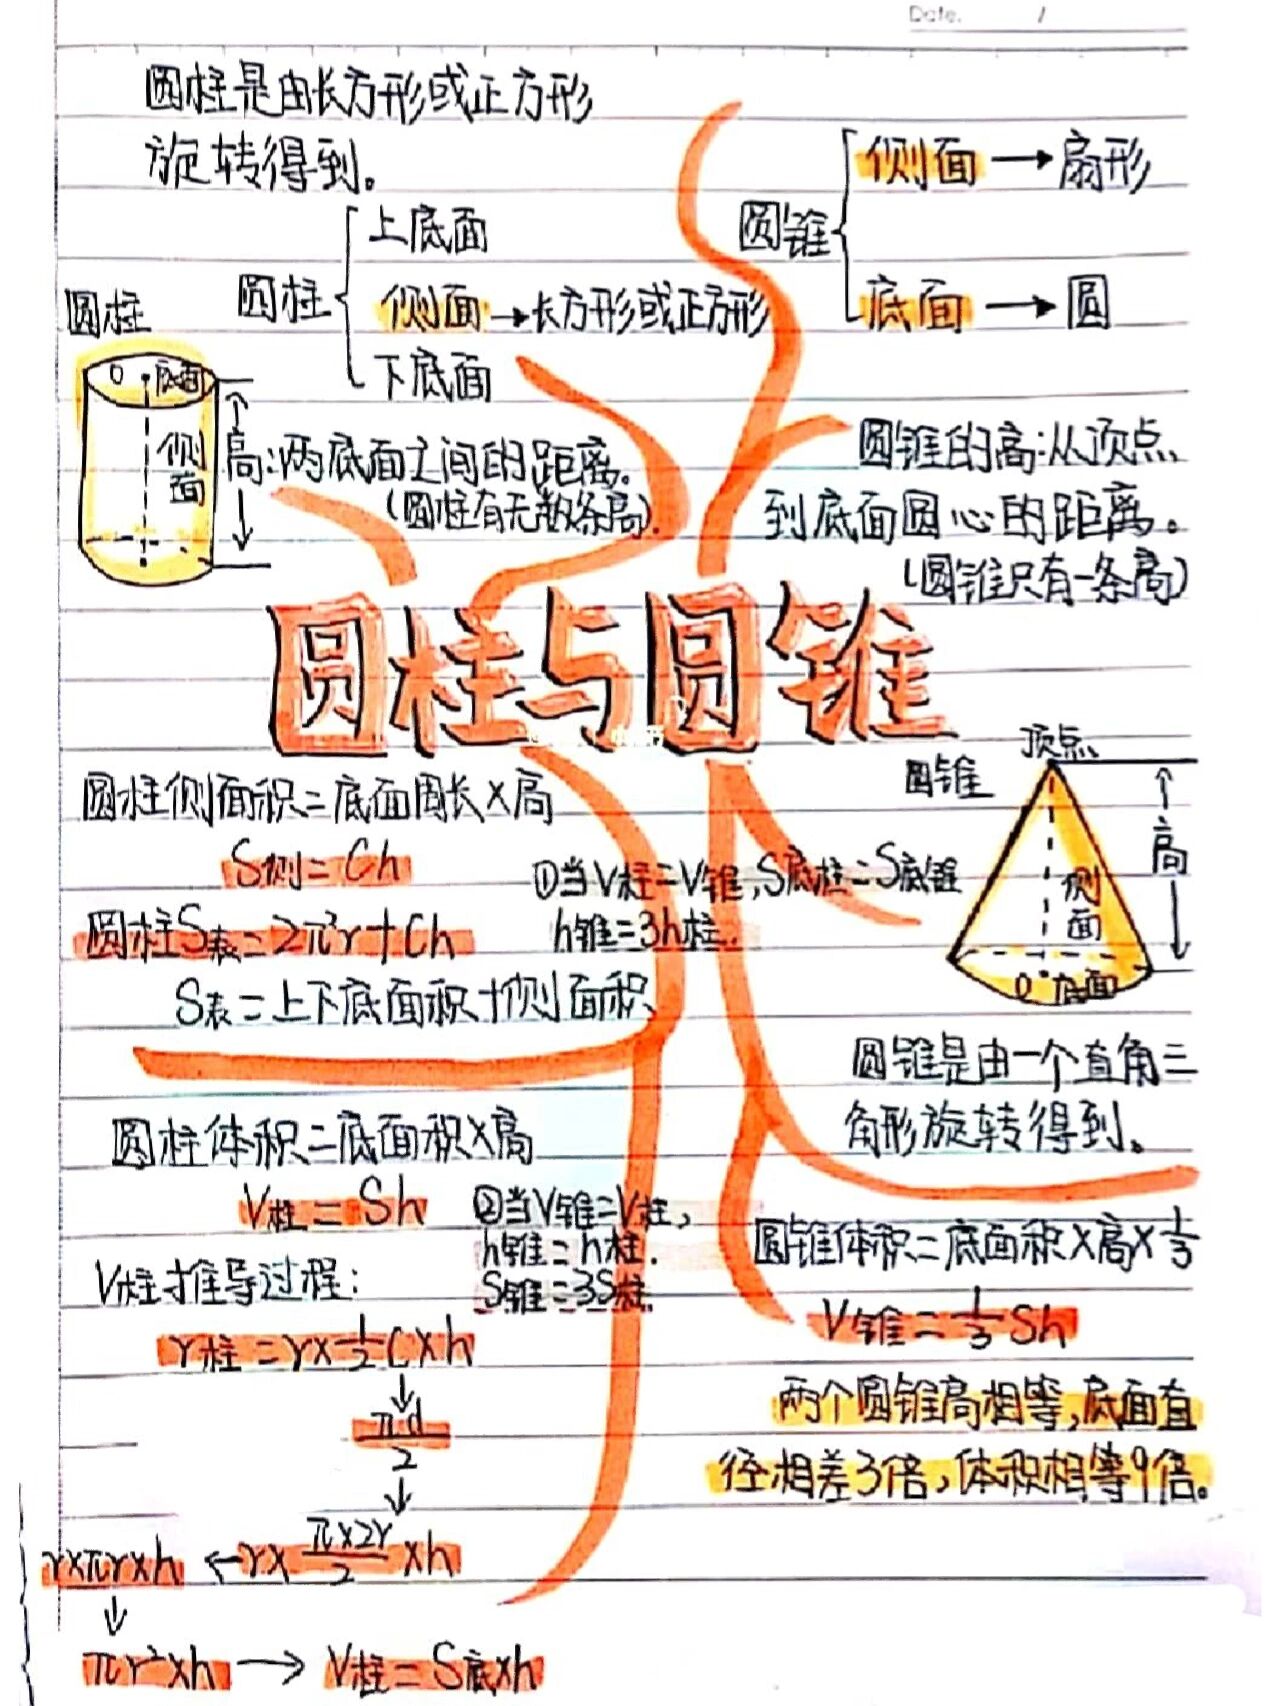 Date. /
圆柱是由长方形或正方形
旋转得到。
圆柱
上底面
侧面→长方形或正方形
下底面
圆锥
侧面→扇形
底面→圆
圆柱
O 底面
侧
面
高:两底面之间的距离。
(圆柱有无数条高).
圆锥的高:从顶点
到底面圆心的距离。
(圆锥只有一条高)
圆柱与圆锥
圆柱侧面积=底面周长×高
S侧=Ch
圆柱S表=2π²r+Ch
S表=上下底面积+侧面积
①当V柱=V锥,S底柱=S底锥
h锥=3h柱.
顶点
圆锥
高
侧
面
O 底面
圆锥是由一个直角三
角形旋转得到。
圆柱体积=底面积×高
V柱=Sh
②当V锥=V柱,
h锥=h柱.
S锥=3S柱.
V柱推导过程:
r柱=r×1/2C×h
↓
πd/2
↓
r×πr×h ← r×π×2r/2×h
↓
πr²×h → V柱=S底×h
圆锥体积=底面积×高×1/3
V锥=1/3Sh
两个圆锥高相等,底面直
径相差3倍,体积相等9倍。